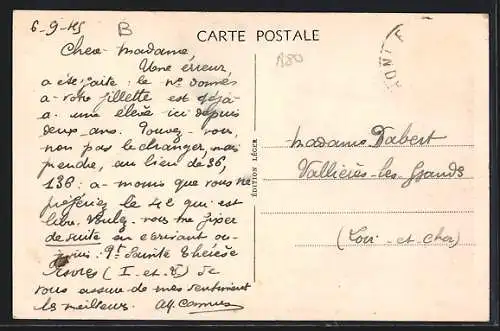 6-9-45
B
CARTE POSTALE
R80
Chère Madame
Une erreur
a été faite : le n° donné
a votre fillette est déjà
a une élève ici depuis
deux ans. Pouvez-vous,
non pas le changer, mais
prendre, au lieu de 36,
136 : a-moins que vous ne
préfériez le 42 qui est
libre. Voulez-vous me fixer
de suite en écrivant
Sainte Thérèse
(I-et-V) Je
vous assure de mes sentiments
les meilleurs.
ÉDITION LÉGER
Madame Dabert
Vallières-les-Grands
(Loir-et-Cher)
PONT